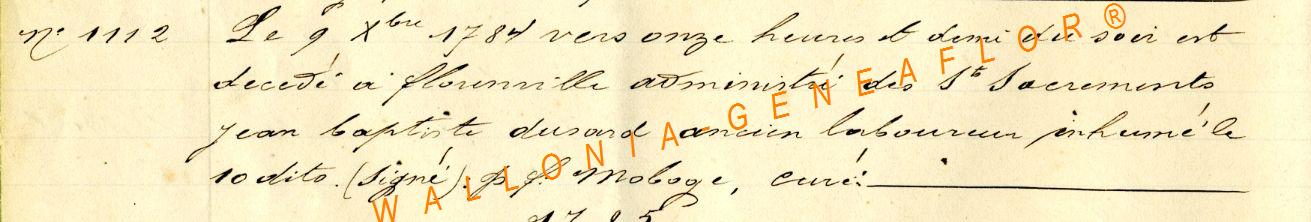 n° 1112 Le 9 Xbre 1784 vers onze heures et demi du soir est
decedé à florenville administré des Sts Sacrements
jean baptiste dusard ancien laboureur inhumé le
10 dito. (signé). p. f. Moboge, curé.
WALLONIA-GENEAFLOR®